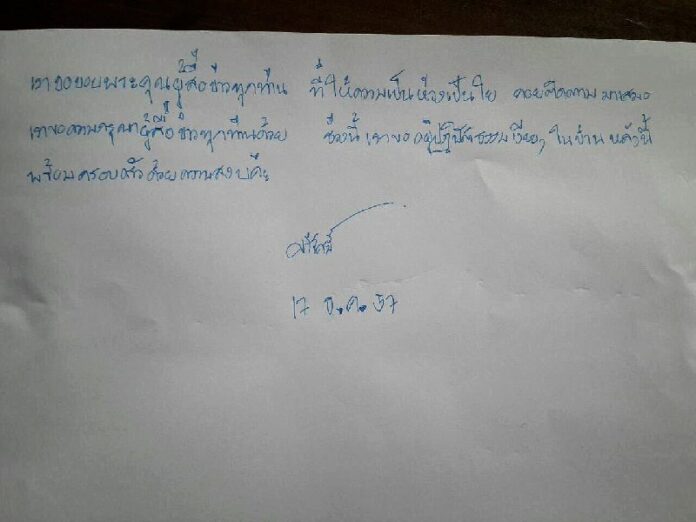 เราขอขอบพระคุณผู้สื่อข่าวทุกท่าน ที่ให้ความเป็นห่วงเป็นใย คอยติดตามมาเสมอ
เราขอความกรุณาผู้สื่อข่าวทุกท่านด้วย ช่วงนี้เราขออยู่ปฏิบัติธรรมเงียบๆ ในบ้านหลังนี้
พร้อมครอบครัวด้วยความสงบค่ะ
17 ธ.ค. 57